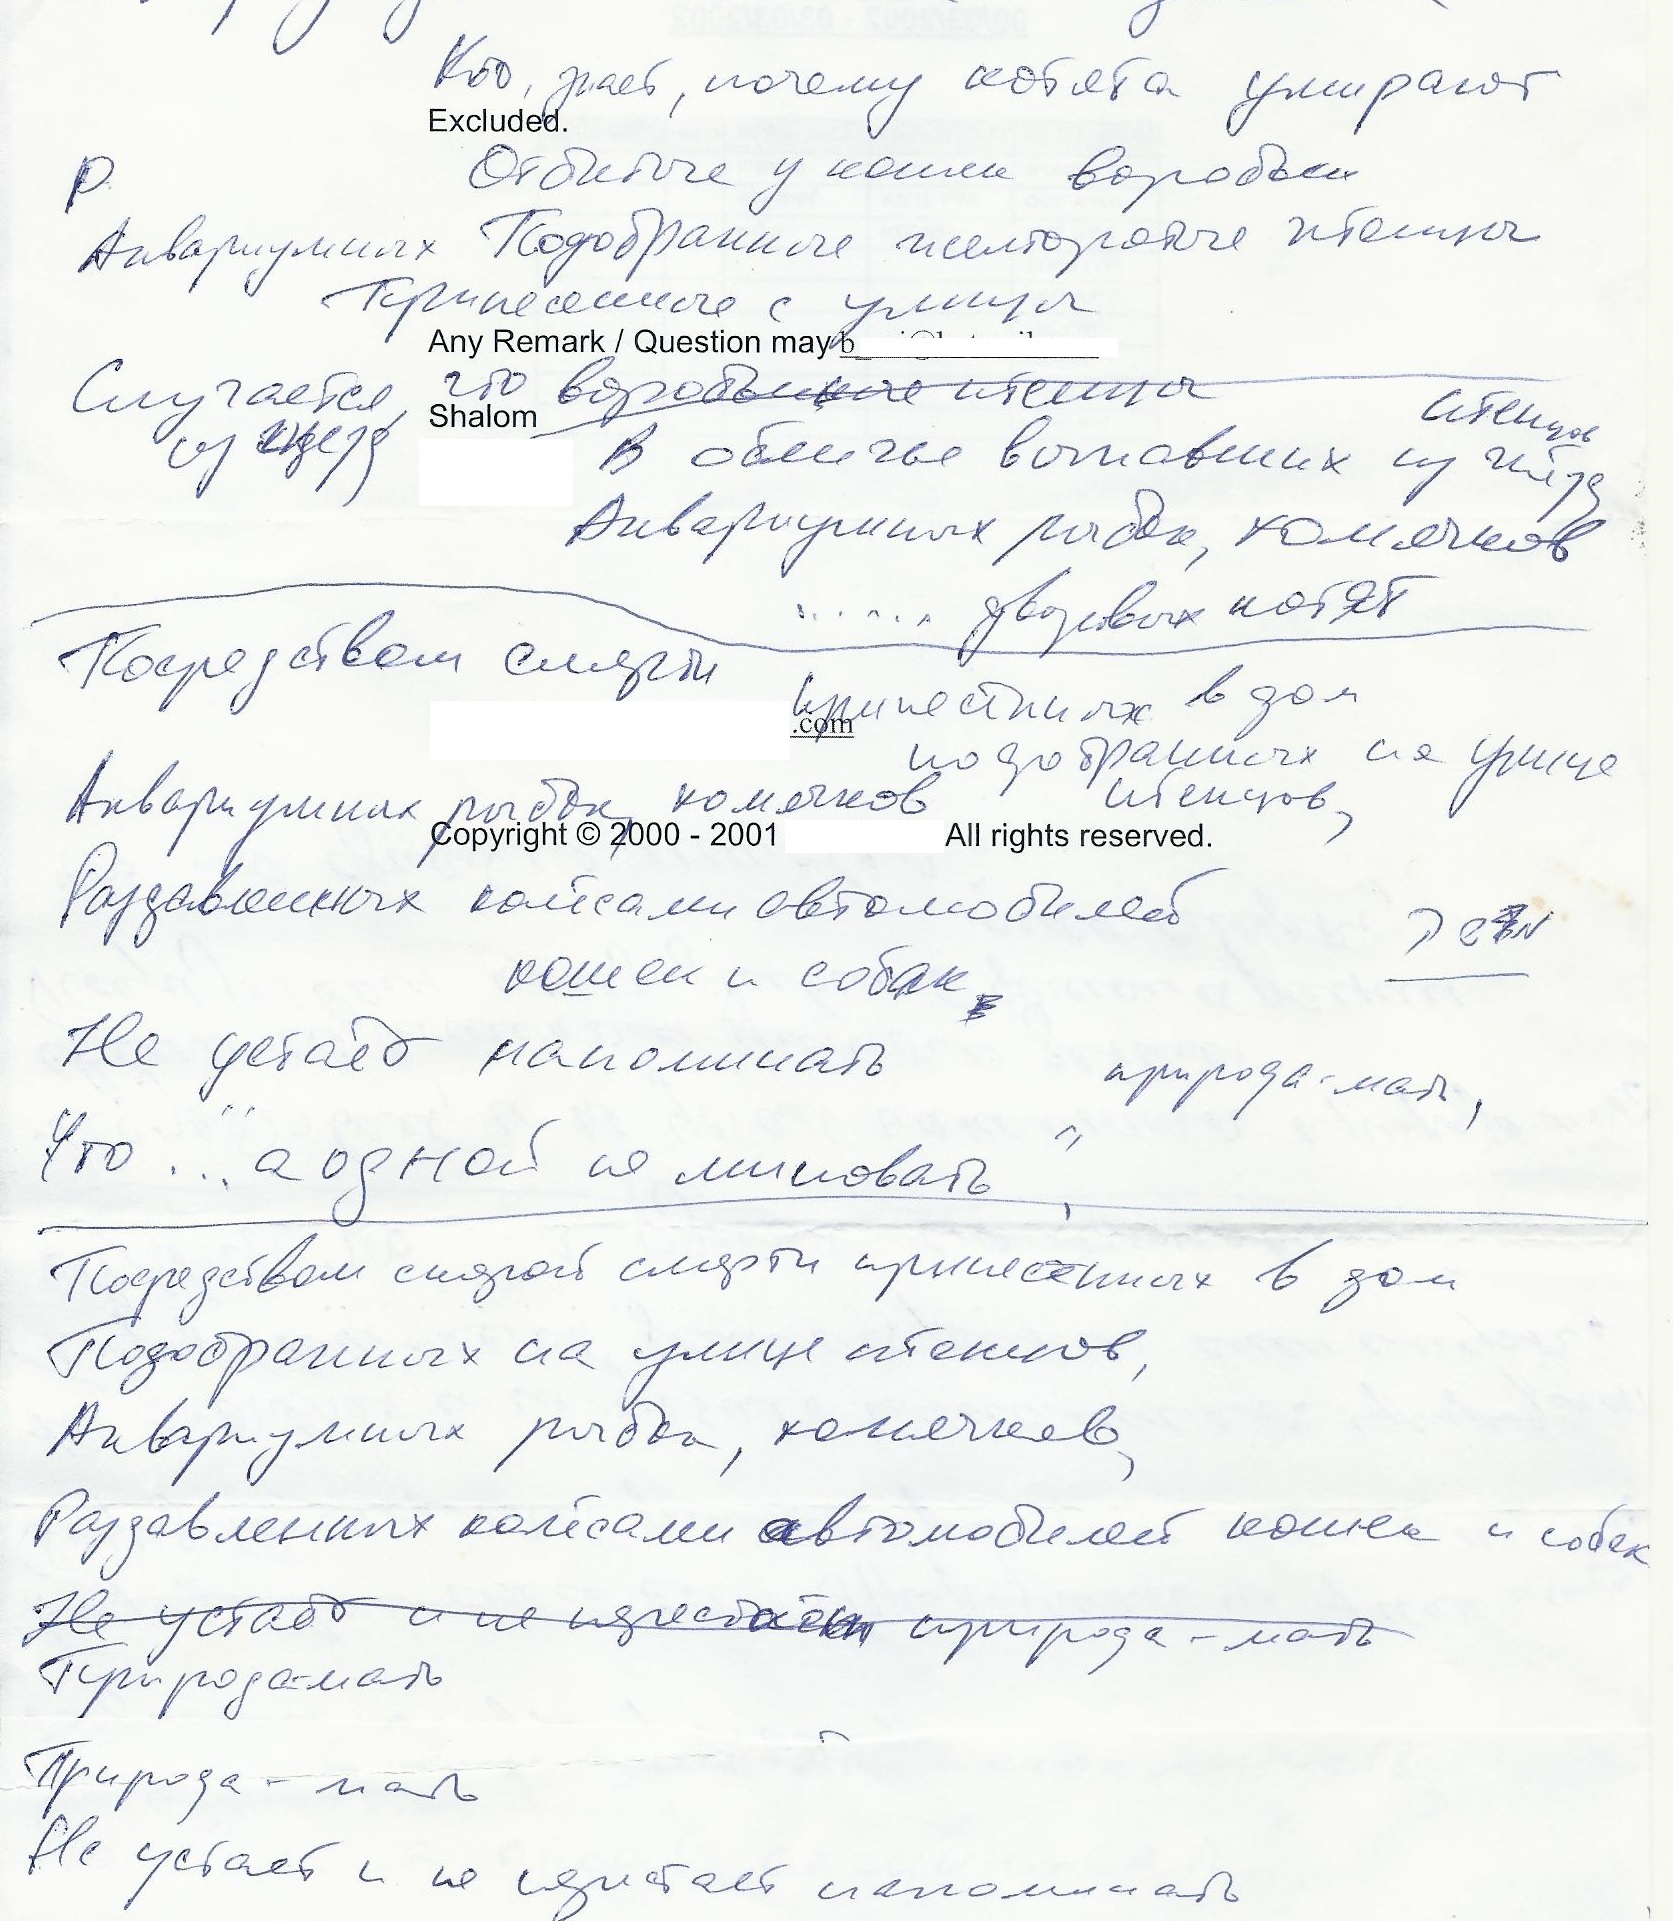 Кто, знает, почему котята умирают
Excluded.
Р
Отбитые у кошки воробьи
Аквариумных Подобранные желторотые птенцы
Принесенные с улицы
Any Remark / Question may b
Случается, что воробьиные птенцы
Shalom
птенцов
из гнезд
В обличье выпавших из гнёзд
Аквариумных рыбок, хомячков
...... дворовых котят
Посредством смерти
принесённых в дом
.com
подобранных на улице
Аквариумных рыбок, хомячков птенцов,
Copyright © 2000 - 2001 All rights reserved.
Раздавленных колёсами автомобилей
кошек и собак
Не устаёт напоминать
природа-мать,
Что ... "а одной не миновать",
Посредством скорой смерти принесённых в дом
Подобранных на улице птенцов,
Аквариумных рыбок, хомячков,
Раздавленных колёсами автомобилей кошек и собак
Не устаёт и не перестаёт природа-мать
Природа-мать
Природа-мать
Не устаёт и не перестаёт напоминать